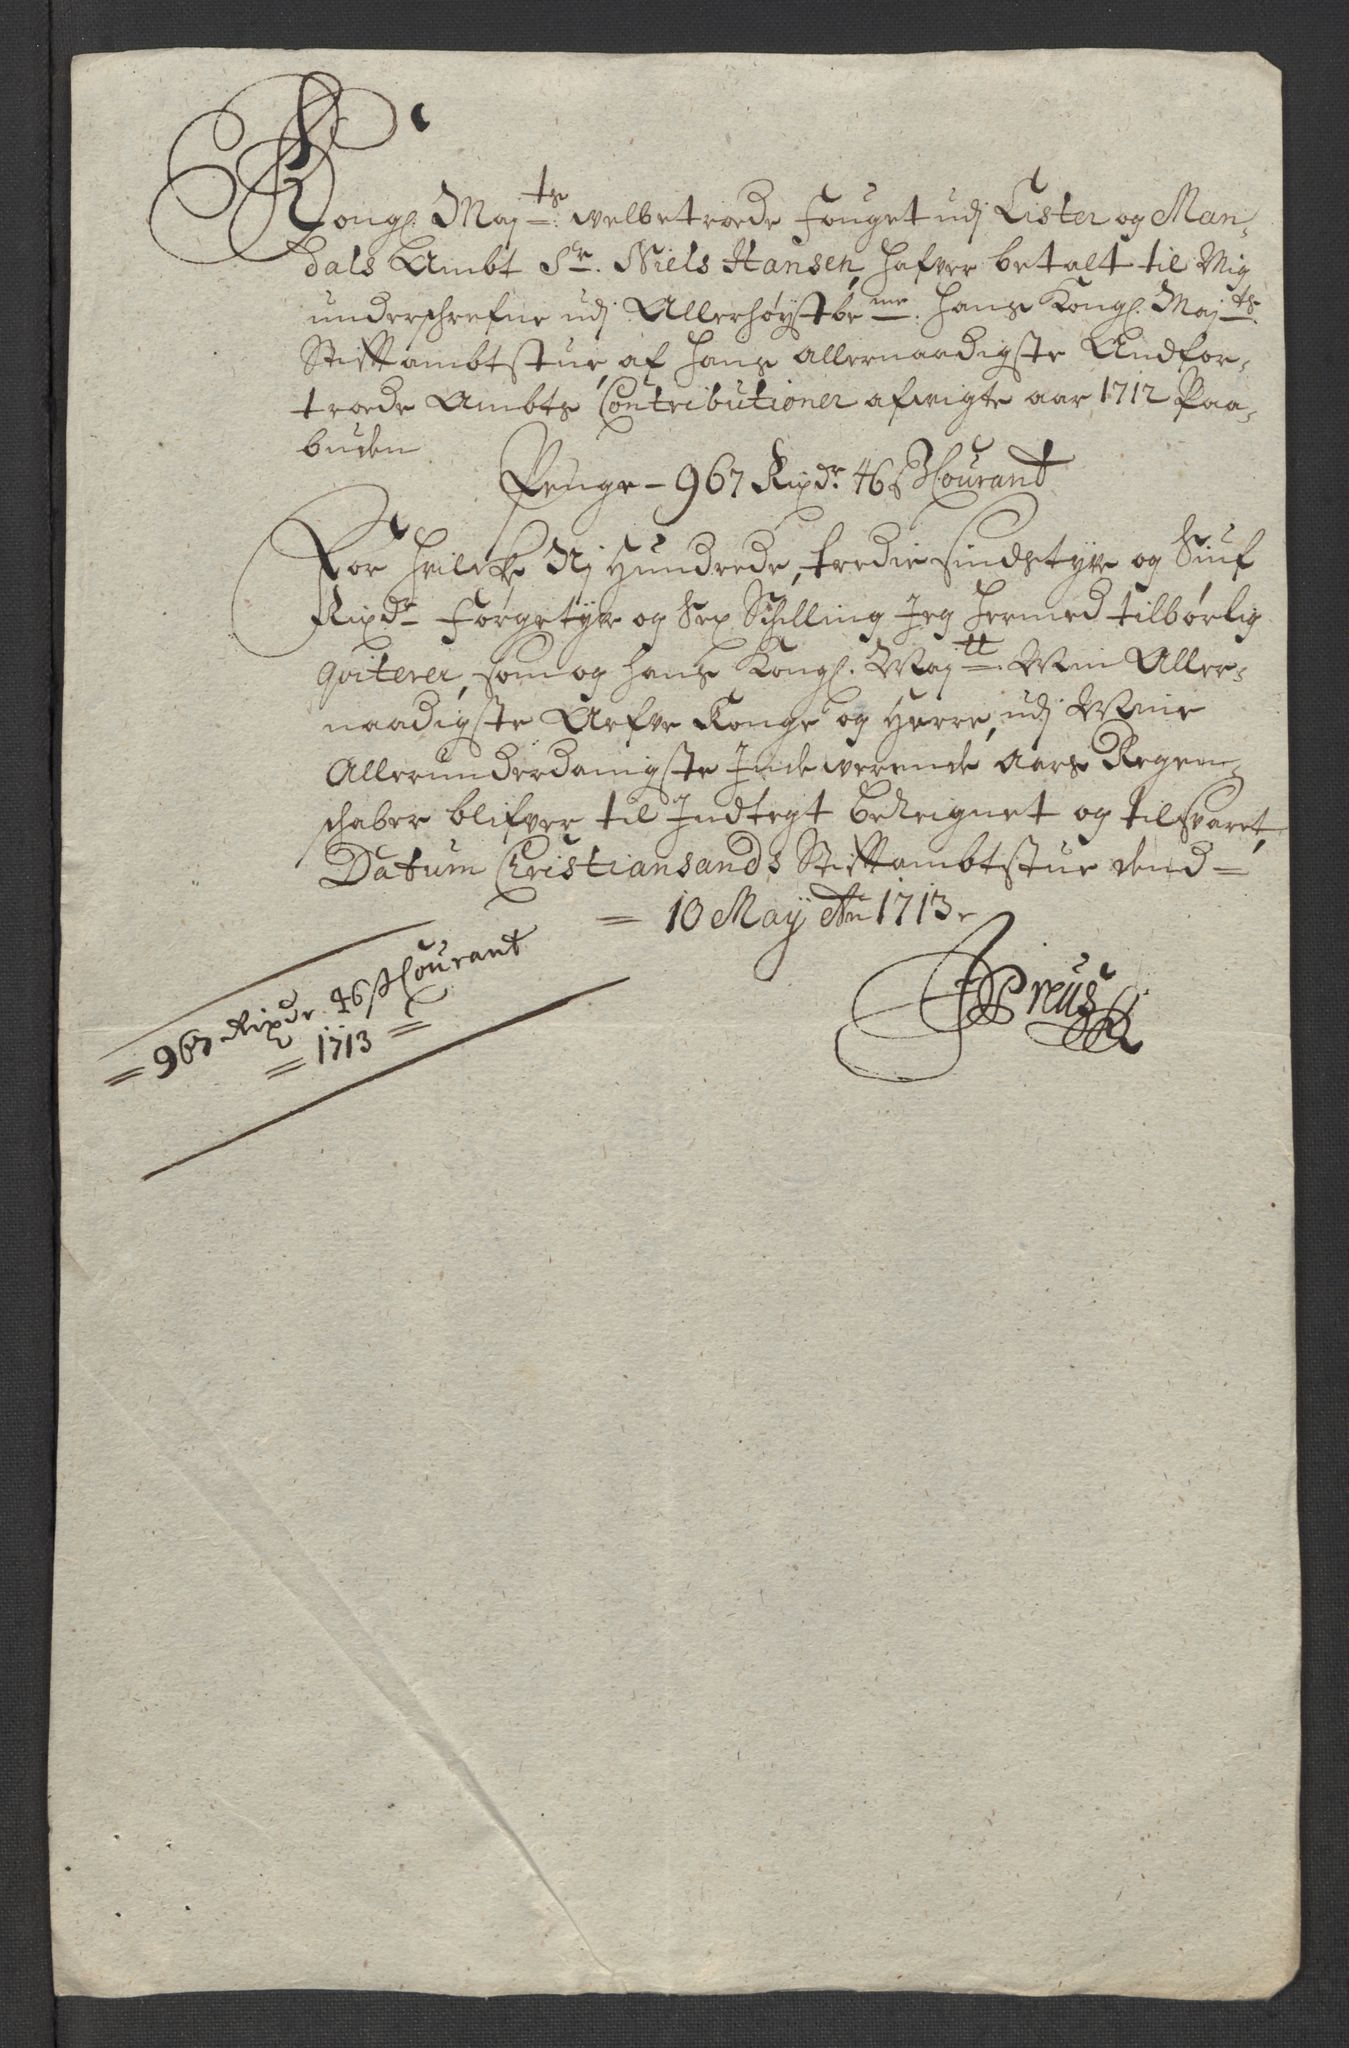 Kongl. Maj:ts velbetroede Fouget udj Lister og Man-
dals Ambt Sr. Niels Hansen, hafver betalt til Mig
underschrefne udj Allerhøystbe:me. Hans Kongl. Maj:ts
Stiftambtstue, af hans allernaadigste Andfor-
troede Ambts Contributioner afvigte aar 1712 Paa-
buden
Penge – 967 Rixdr. 46 s Courant
For hvilcke Nj Hundrede, tredie sindstyve og Siuf
Rixdr Førgetyve og Sex Schilling Jeg hermed tilbørlig
qviterer, som og Hans Kongl. May:tt Min Aller-
naadigste Arfve Konge og Herre, udj Mine
Allerunderdanigste Indeverende Aars Regen-
schaber blifver til Indtegt bereignet og tilsvaret,
Datum Christiansands Stiftambtstue dend =
= 10 Maÿ Ao 1713.
JPreüs
= 967 Rixdr. 46 s Courant
= 1713 =